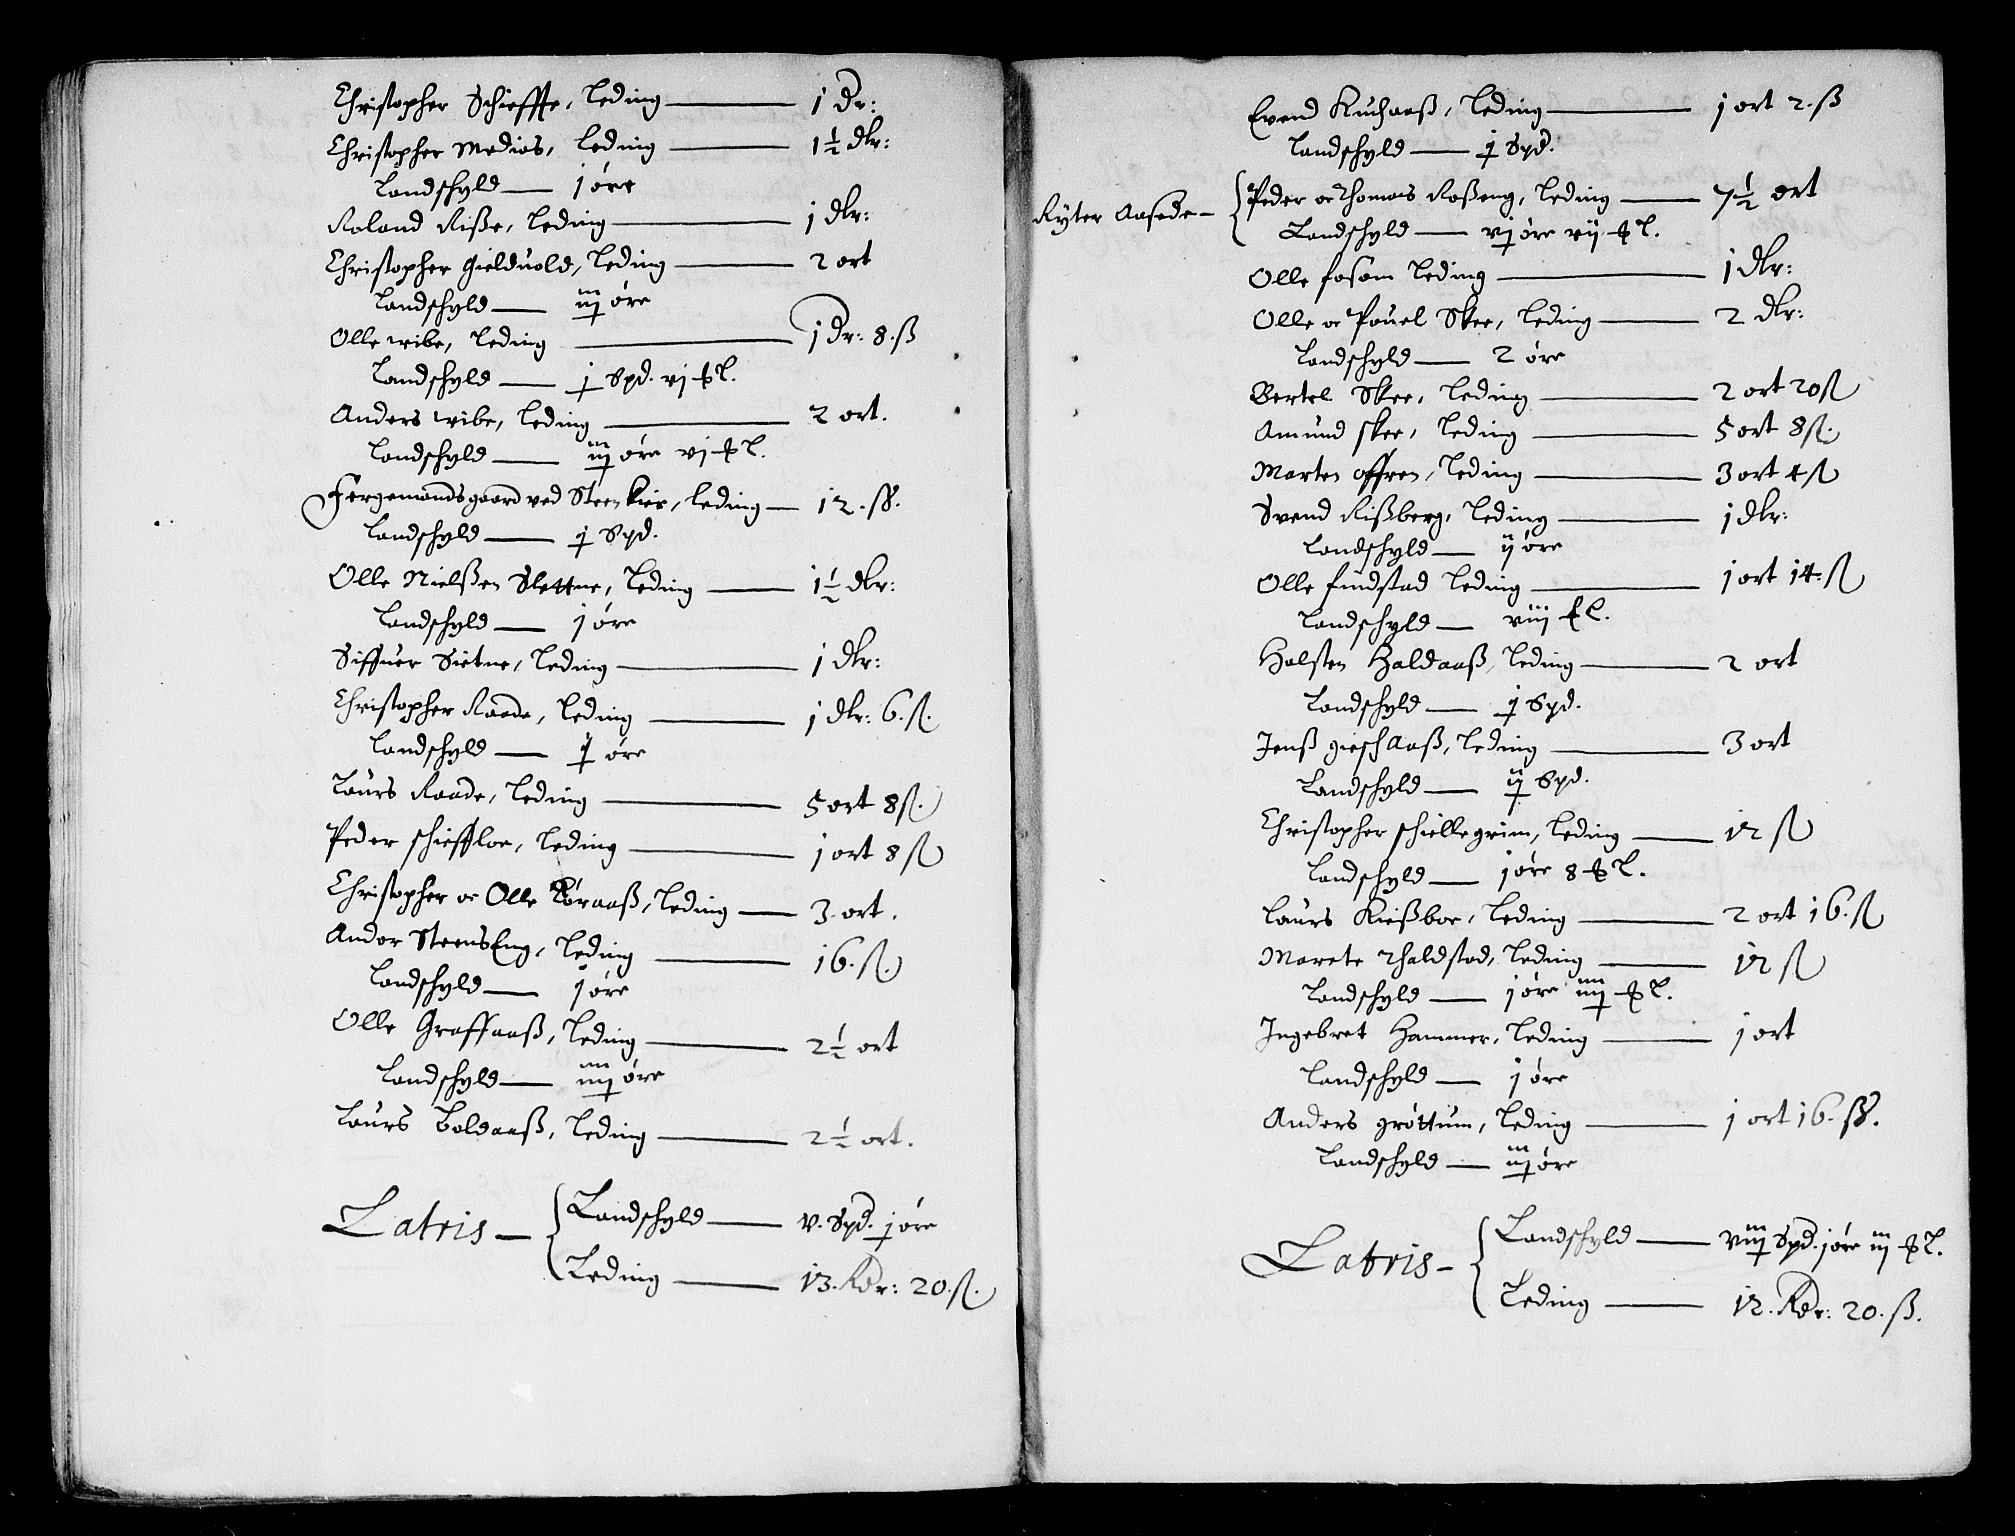 Christopher Schieffte, Leding — 1 Dr:
Christopher Medias, Leding — 1½ dlr:
Landschyld — j øre
Roland Risße, Leding — 1 dlr:
Christopher Gielduold, Leding — 2 ort
Landschyld — iij øre
Olle wibe, Leding — 1 Dr: 8. ß
Landschyld — j Spd. vj ₰ l.
Anders wibe, Leding — 2 ort.
Landschyld — iij øre vj ₰ l.
Fergemandsgaard ved Steenkier, Leding — 12. ß.
Landschyld — j Spd.
Olle Nielßen Slettne, Leding — 1½ dlr:
Landschyld — j øre
Siffuer Sietne, Leding — 1 dlr:
Christopher Raade, Leding — 1 dlr: 6. ß.
Landschyld — j øre
Laurs Raade, Leding — 5 ort 8 ß.
Peder schieffloe, Leding — 1 ort 8 ß
Christopher oc Olle Køraaß, Leding — 3 ort.
Andor SteensEng, Leding — 16. ß.
Landschyld — j øre
Olle Graffaaß, Leding — 2½ ort
Landschyld — iiij øre
Laurs Boldaaß, Leding — 2½ ort.
Latris —
Landschyld — v. Spd. j øre
Leding — 13. Rdr: 20. ß.
Evend Kuchaaß, Leding — 1 ort 2. ß
Landschyld — j Spd.
Ryter Aasede — Peder oc Thomas Roßeng, Leding — 7½ ort
Landschyld — vj øre vij ₰ l.
Olle fosom Leding — 1 dlr:
Olle oc Pouel Skee, Leding — 2 dlr:
Landschyld — 2 øre
Bertel Skee, Leding — 2 ort 20 ß
Amund skee, Leding — 5 ort 8 ß.
Morten offren, Leding — 3 ort 4 ß
Svend Rißberg, Leding — 1 dlr:
Landschyld — ij øre
Olle fundstad Leding — 1 ort 14. ß
Landschyld — viij ₰ l.
Halsten Haldaaß, Leding — 2 ort
Landschyld — j Spd.
Jenß gieschaaß, Leding — 3 ort
Landschyld — ij Spd.
Christopher schiellegrim, Leding — 12 ß
Landschyld — j øre 8 ₰ l.
Laurs Kießboe, Leding — 2 ort 16. ß
Marete Thaldstad, Leding — 12 ß
Landschyld — j øre iiij ₰ l.
Ingebret Hammer, Leding — 1 ort
Landschyld — j øre
Anders grøttum, Leding — 1 ort 16. ß.
Landschyld — iij øre
Latris —
Landschyld — viij Spd. j øre iij ₰ l.
Leding — 12. Rdr: 20. ß.